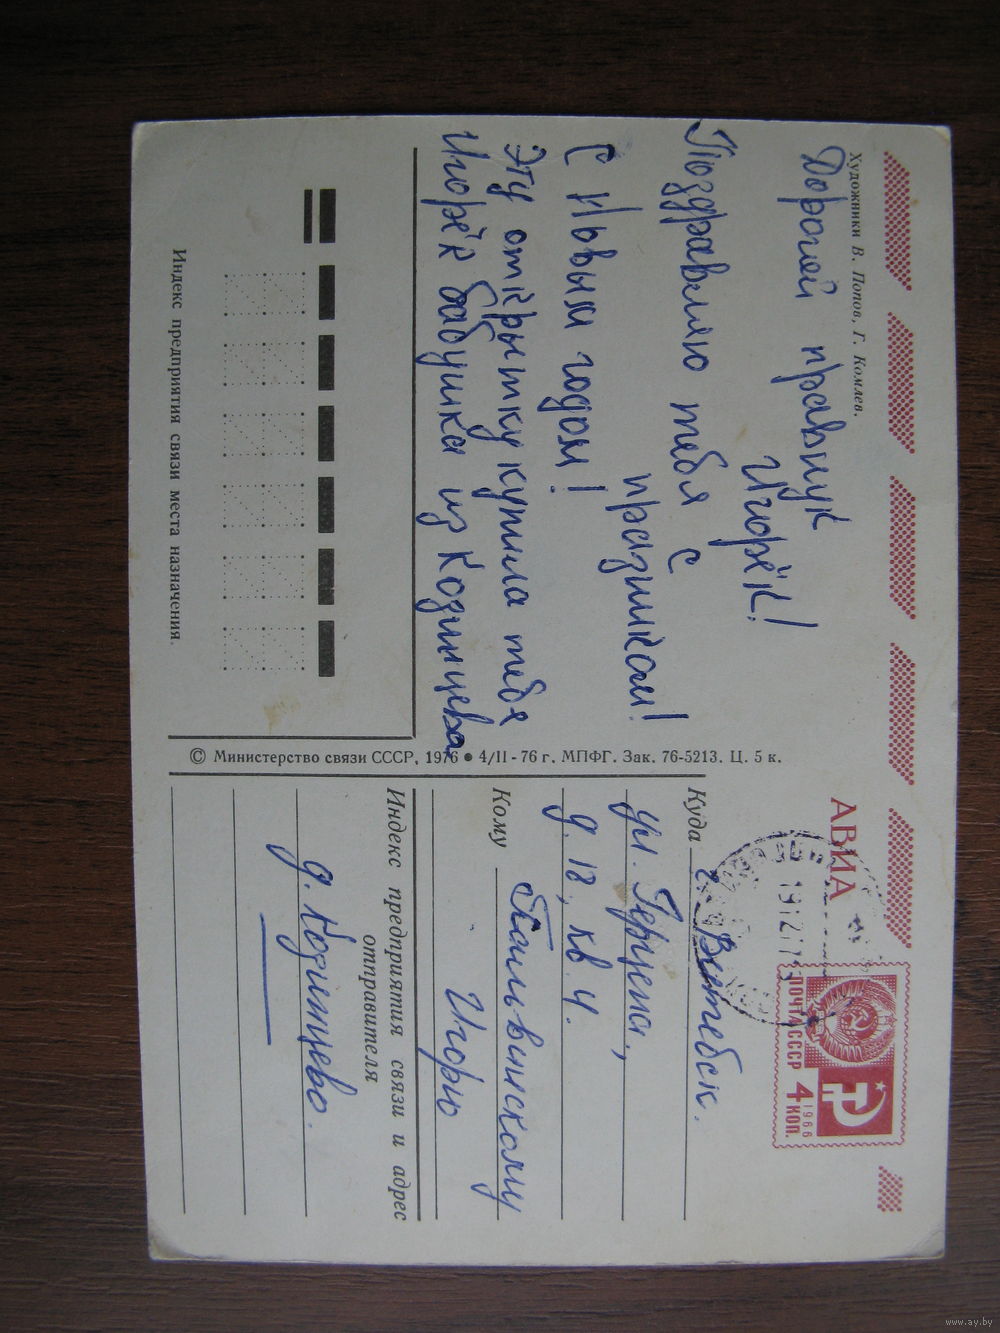 Художники В. Попов, Г. Комлев.
Дорогой правнук
Игорёк!
Поздравляю тебя с
праздником!
С Новым годом!
Эту открытку купила тебе
Игорёк бабушка из Кодинцева.
Индекс предприятия связи места назначения.
© Министерство связи СССР, 1976 ● 4/II - 76 г. МПФГ. Зак. 76-5213. Ц. 5 к.
АВИА
ПОЧТА СССР
4 КОП.
1966
Куда г. Витебск.
ул. Герцена,
д. 18, кв 4.
Кому
Игорю
Индекс предприятия связи и адрес
отправителя
д. Кодинцево.
www.ay.by